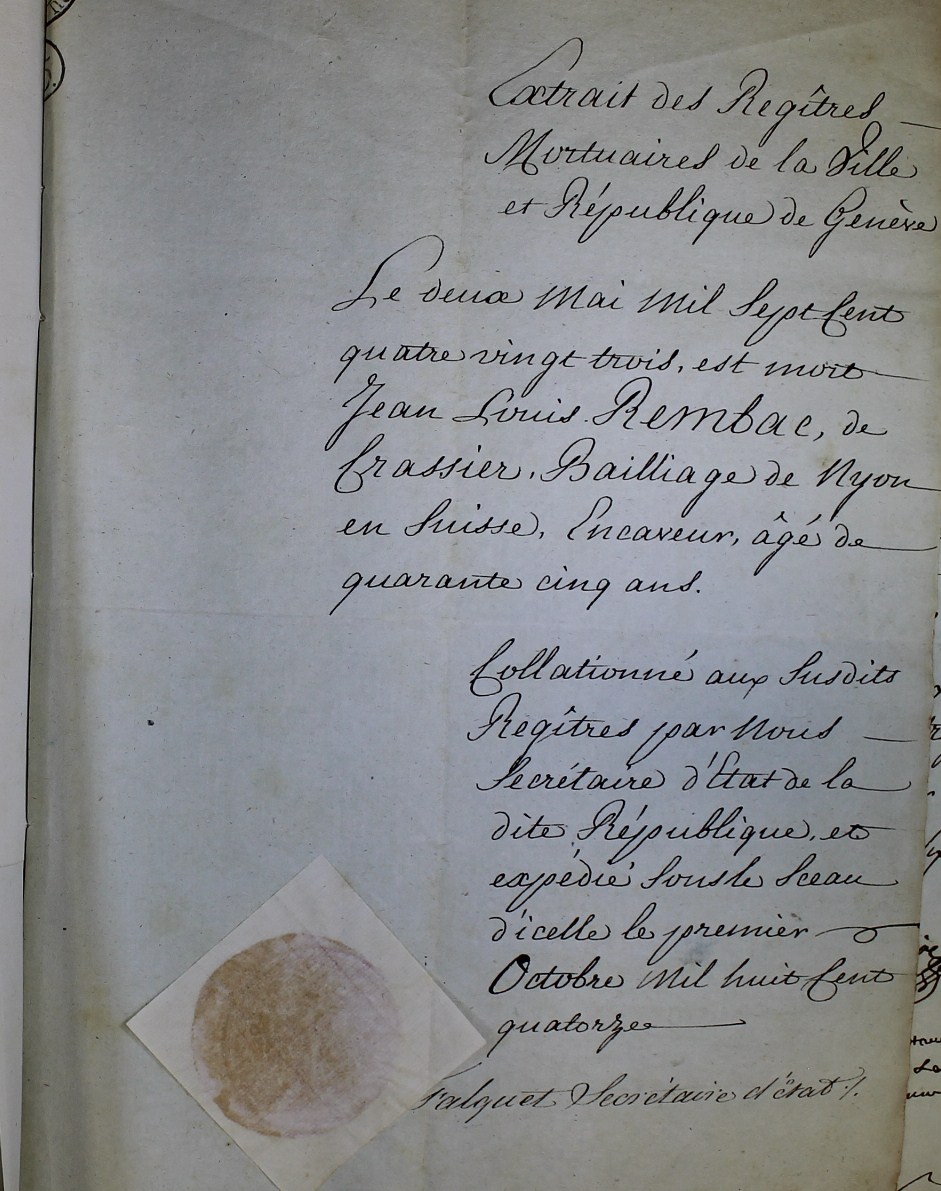 Extrait des Regîtres
Mortuaires de la Ville
et République de Genève
Le deux Mai Mil Sept Cent
quatre vingt trois, est mort
Jean Louis Rembac, de
Crassier, Bailliage de Nyon
en Suisse, Encaveur, âgé de
quarante cinq ans.
Collationné aux Susdits
Regîtres par Nous
Secrétaire d'Etat de la
dite République, et
expédié Sous le Sceau
d'icelle le premier
Octobre Mil huit Cent
quatorze
Falquet Secrétaire d'état